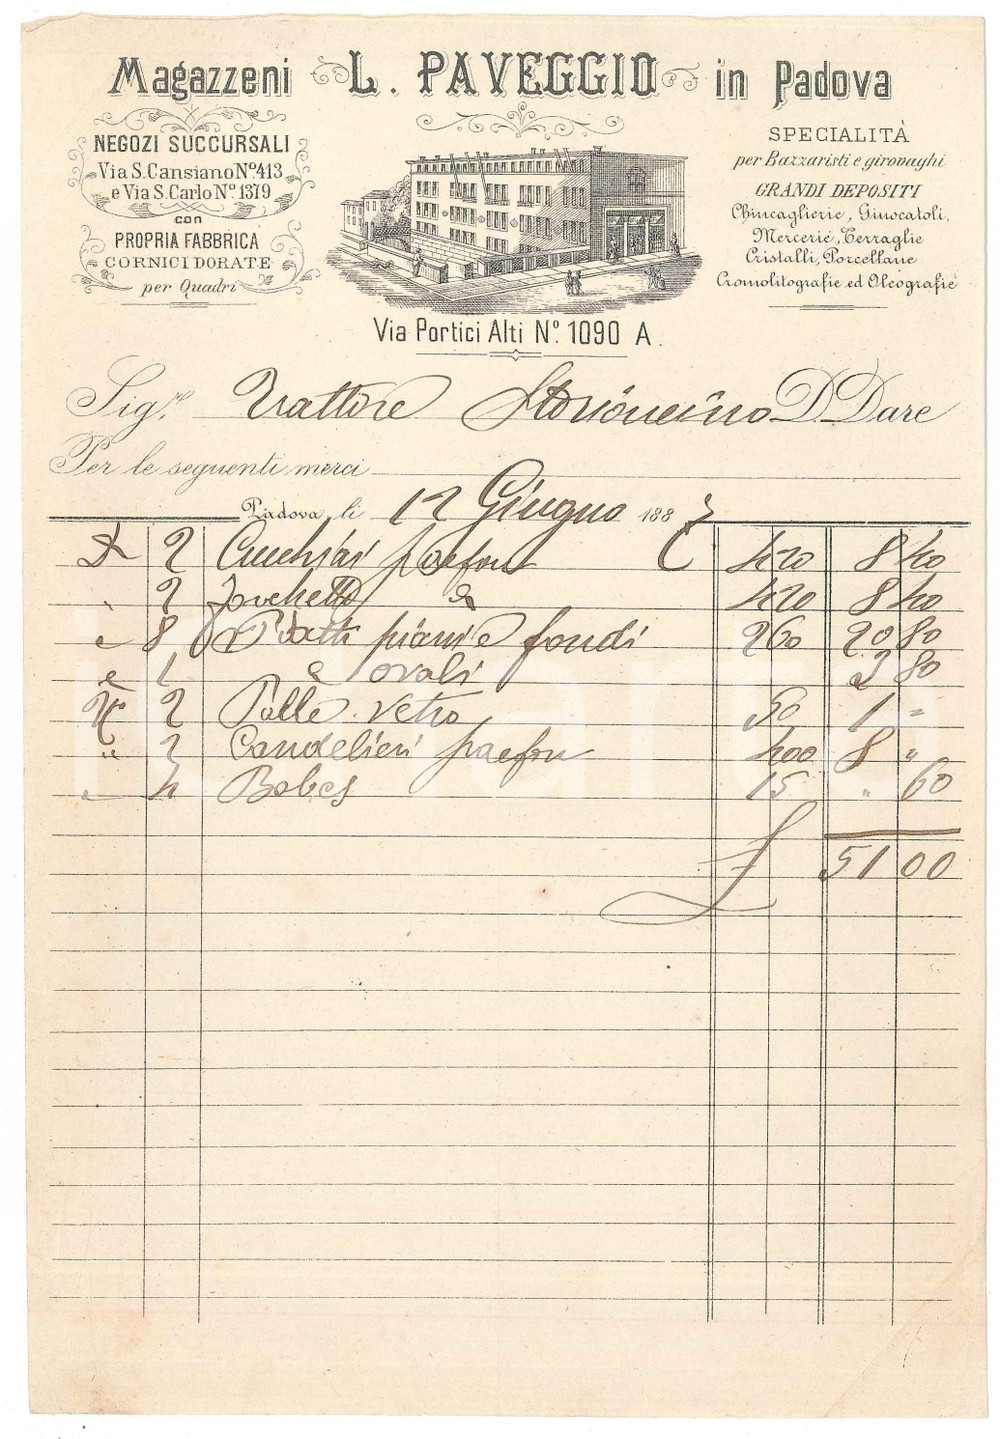 Magazzeni L. PAVEGGIO in Padova
NEGOZI SUCCURSALI
Via S. Cansiano Nº 413
e Via S. Carlo Nº 1379
con
PROPRIA FABBRICA
CORNICI DORATE
per Quadri
SPECIALITÀ
per Bazzaristi e girovaghi
GRANDI DEPOSITI
Chincaglierie, Giuocatoli,
Mercerie, Terraglie
Cristalli, Porcellane
Cromolitografie ed Oleografie
Via Portici Alti Nº 1090 A.
Sig.re Trattore Storioncino D. Dare
Per le seguenti merci
Padova, li 12 Giugno 1887
2 Cucchiai pacfon C 4 20 8 40
" 2 Forchette 4 20 8 40
" 8 Piatti piani e fondi 2 60 20 80
" 1 " ovali 3 80
2 Palle vetro 50 1 "
" 2 Candelieri pacfon 400 8 "
" 4 Bobes 15 " 60
51 00